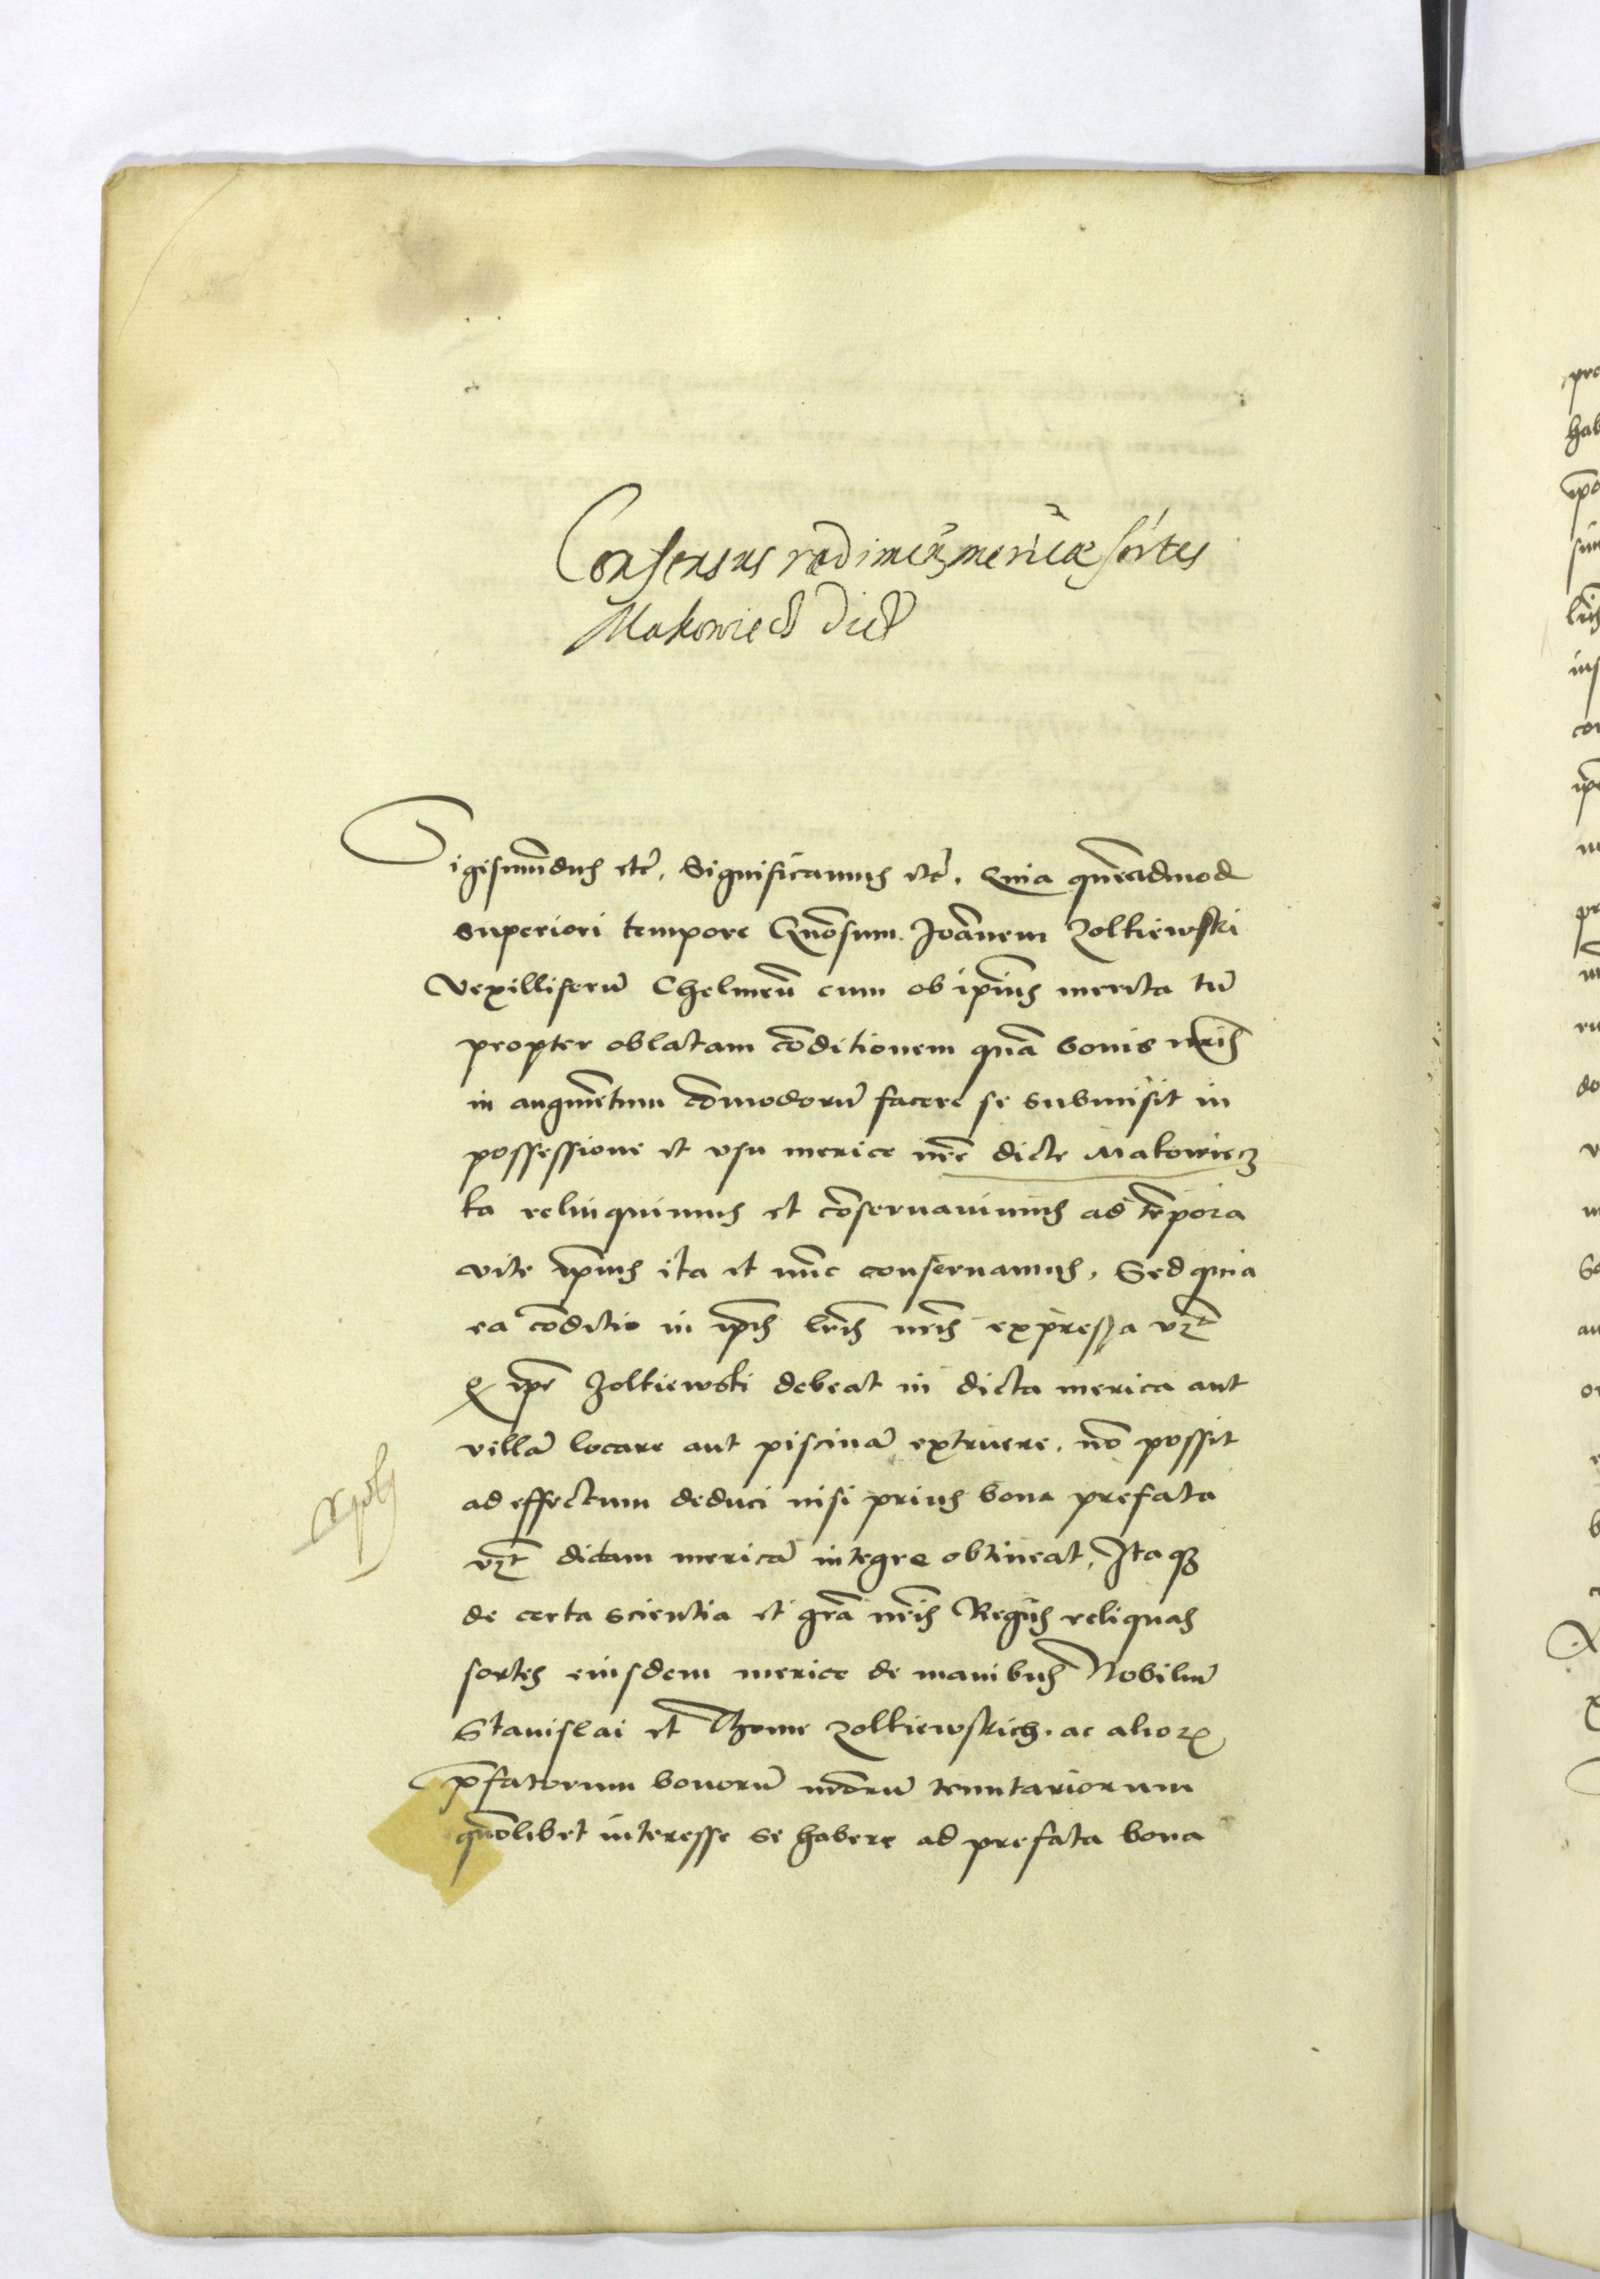 Consensus redimen merice sortes
Makowiecz dict
Sigismundus etc̃. Significamus etc̃. Quia quẽadmod
superiori tempore Gn̄osum Joãnem Zolkiewski
Vexilliferũ Chelmeñ cum ob ip̄ius merita tũ
propter oblatam cõditionem quã bonis nr̄is
in augmẽtum cõmodorũ facere se submisit in
possessione et vsu merice nr̄e dicte Makowiecz
ka relinquimus et cõseruauimus ad tẽpora
vite ip̄ius ita et nũc conseruamus. Sed quia
ea cõditio in ip̄is lr̄is nr̄is expressa vz̃
ꝙ ip̄e Zolkiewski debeat in dicta merica aut
villã locare aut piscinã extruere. nõ possit
ad effectum deduci nisi prius bona prefata
vz̃ dictam mericã integre obtineat. Itaqꝫ
de certa scientia et gr̄a nr̄is Regijs reliquas
sortes eiusdem merice de manibus Nobiliũ
Stanislai et Thome Zolkiewskich. ac alioꝝ
p̄fatorum bonorũ nr̄orũ tenutariorum
quõlibet interesse se habere ad prefata bona